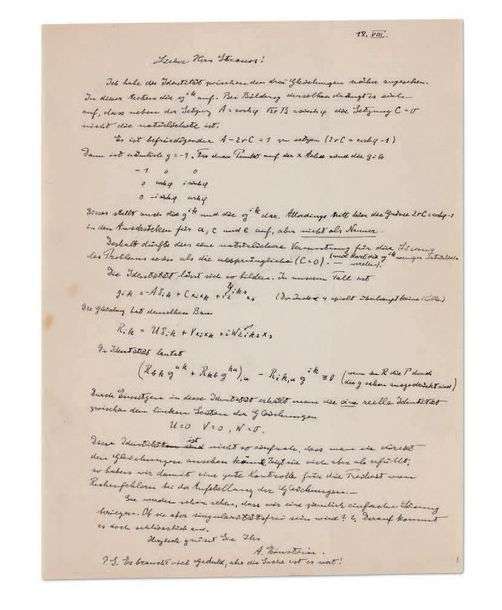 18. VIII.
Lieber Herr Strauss!
Ich habe die Identität zwischen den drei Gleichungen näher angesehen.
In dieser treten die g^{ik} auf. Bei Bildung derselben drängt es sich
auf, dass neben der Setzung A = coshφ B = sinhφ die Setzung C = 0
nicht die natürlichste ist.
Es ist befriedigender A - 2rC = 1 zu setzen (2rC = coshφ - 1)
Dann ist nämlich g = -1. Für den Punkt auf der x Achse sind die g_{ik}
-1 0 0
0 coshφ i sinhφ
0 -i sinhφ coshφ
Dieses stellt auch die g^{ik} und die g^{ik} dar. Allerdings tritt hier die Grösse 2rC = coshφ-1
in den Ausdrücken für a, c und e auf, aber nicht als Nenner.
Deshalb dürfte dies eine natürlichere Voraussetzung für die Lösung
des Problems sein als die ursprüngliche (C = 0).
Die Identität lässt sich so bilden. In unserem Fall ist
g_{ik} = A δ_{ik} + C x_i x_k +
Die Gleichung hat denselben Bau
R_{ik} = U δ_{ik} + V x_i x_k + i W
Die Identität lautet
Durch Einsetzen in diese Identität erhält man die reelle Identität
zwischen den linken Seiten der Gleichungen
U = 0 V = 0, W = 0.
Diese Identität ist nicht so einfach, dass man sie direkt
den Gleichungen ansehen kann. Zeigt sie sich aber als erfüllt,
so haben wir damit eine gute Kontrolle für die Freiheit von
Rechenfehlern bei der Aufstellung der Gleichungen.-
Sie werden schon sehen, dass wir eine ziemlich einfache Lösung
kriegen. Ob sie aber singularitätsfrei sein wird? Darauf kommt
es doch schliesslich an.
Herzlich grüsst Sie Ihr
A. Einstein.
P.S. Es braucht viel Geduld, aber die Sache ist es wert!